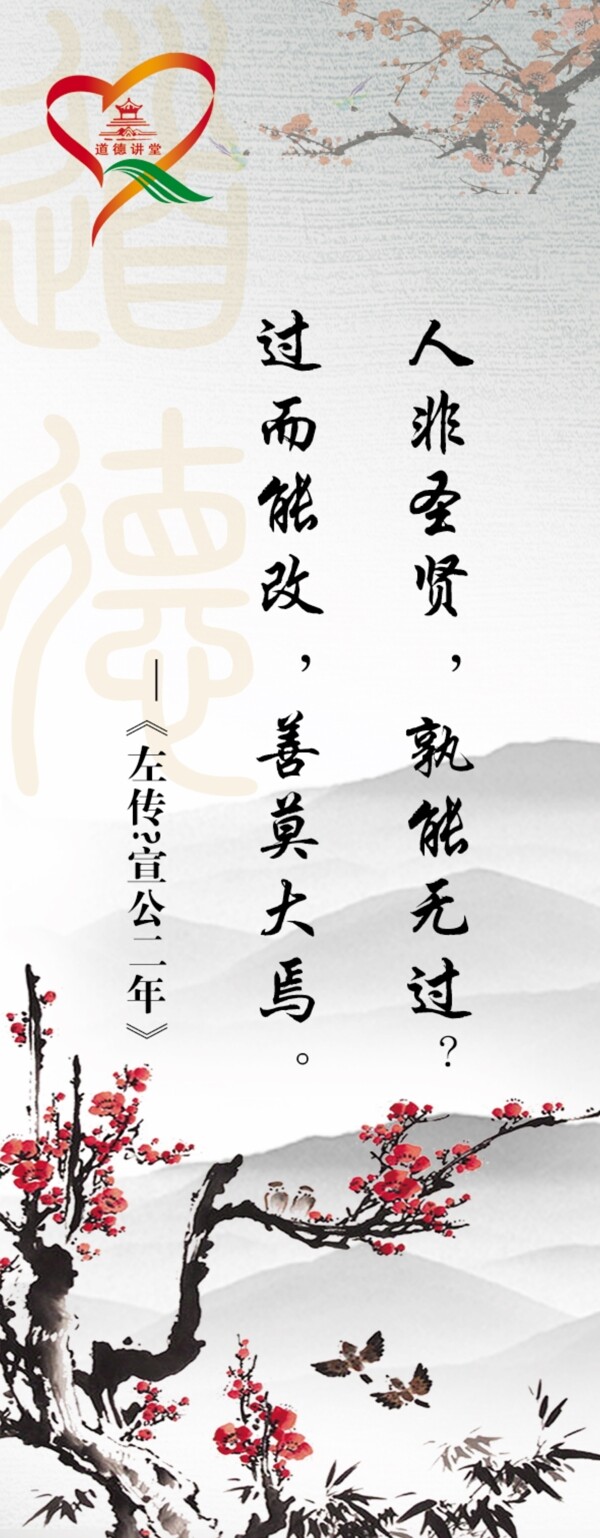 道德讲堂
道德
人非圣贤，孰能无过？
过而能改，善莫大焉。
—《左传?宣公二年》